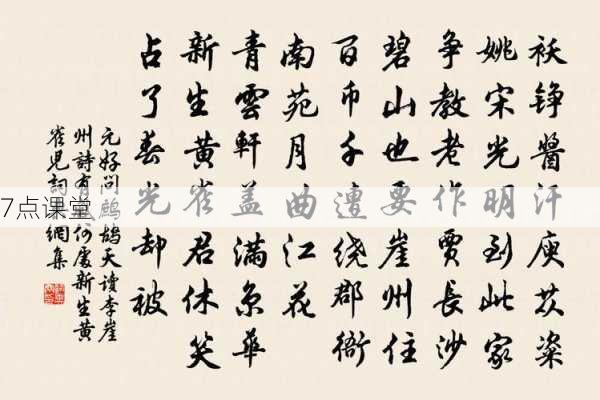 袄铮醬汗庾苡粢
姚宋光明到此家
争教老作贾長沙
碧山也要崖州住
百币千遭绕郡衙
南苑月曲江花
青雲軒盖满京華
新生黄雀君休笑
占了春光却被
元好问鹧鸪天读李崖
州詩有何處新生黄
雀見詞網集
7点课堂